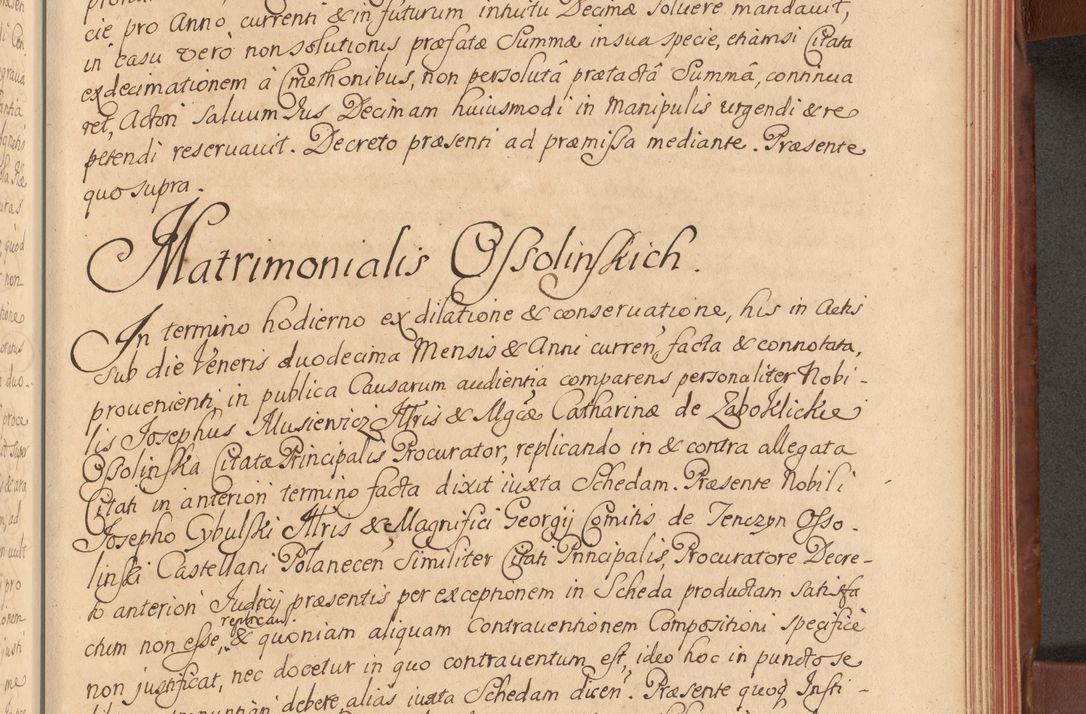 cie pro Anno currenti & in futurum intuitu Decimæ soluere mandauit,
in casu verò non solutionis præfatæ Summæ in sua specie, etiamsi Citata
ex decimationem à Cmethonibus, non persolutâ prætactâ Summâ, continua
ret, Actori saluum Ius Decimam huiusmodi in Manipulis urgendi & re
petendi reseruauit. Decreto præsenti ad præmissa mediante. Præsente
quo supra.
Matrimonialis Ossolinskich.
In termino hodierno ex dilatione & conseruatione, his in Actis
sub die Veneris duodecima Mensis & Anni curren, facta & connotata,
prouenienti, in publica Causarum audientia comparens personaliter Nobi-
lis Josephus Illusiewicz Illris & Mgcæ Catharinæ de Zaboklickie
Ossolinska Citatæ Principalis Procurator, replicando in & contra allegata
Citati in anteriori termino facta dixit iuxta Schedam. Præsente Nobili
Josepho Cybulski Illris & Magnifici Georgij Comitis de Tenczyn Osso-
linski Castellani Polanecen Similiter Citati Principalis, Procuratore Decre-
to anteriori Judicij præsentis per exceptionem in Scheda productam satisfa
ctum non esse, & quoniam aliquam contrauentionem Compositioni specificè
non justificat, nec docetur in quo contrauentum est, ideo hoc in puncto se
debere, alias iuxta Schedam dicen. Præsente quoq Insti-